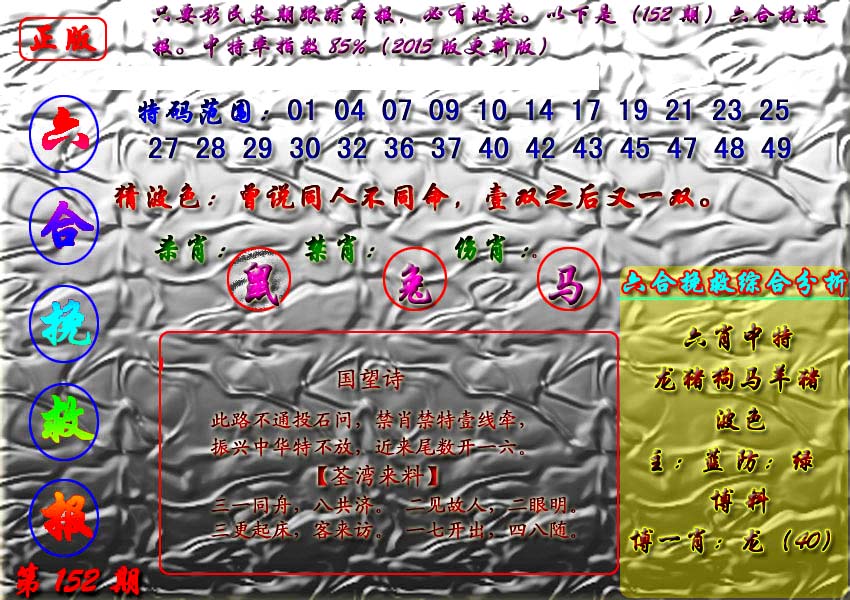 正版
只要彩民长期跟踪本报，必有收获。以下是（152期）六合挽救
报。中特率指数85%（2015版更新版）
六合挽救报
第152期
特码范围：01 04 07 09 10 14 17 19 21 23 25
27 28 29 30 32 36 37 40 42 43 45 47 48 49
猜波色：曾说同人不同命，壹双之后又一双。
杀肖：鼠 禁肖：兔 伤肖：马。
国望诗
此路不通投石问，禁肖禁特壹线牵，
振兴中华特不放，近来尾数开一六。
【荃湾来料】
三一同舟，八共济。 二见故人，二眼明。
三更起床，客来访。 一七开出，四八随。
六合挽救综合分析
六肖中特
龙猪狗马羊猪
波色
主：蓝防：绿
博料
博一肖：龙（40）